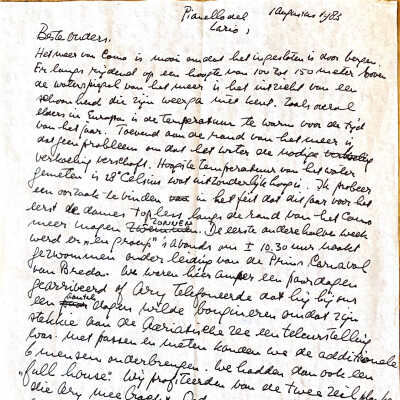 Pianello del Lario, 1 augustus 1983
Beste ouders,
Het meer van Como is mooi omdat het ingesloten is door bergen.
Er langs rijdend op een hoogte van 100 tot 150 meter boven
de waterspiegel van het meer is het uitzicht van een
schoonheid die zijn weerga niet kent. Zoals overal
elders in Europa is de temperatuur te warm voor de tijd
van het jaar. Toevend aan de rand van het meer is
dat geen probleem omdat het water de nodige
verkoeling verschaft. Hoogste temperatuur van het water
gemeten is 28° Celsius wat uitzonderlijk hoog is. Ik probeer
een oorzaak te vinden in het feit dat dit jaar voor het
eerst de dames topless langs de rand van het Como
meer mogen zonnen. De eerste anderhalve week
werd er "en groep" 's avonds om 10.30 uur naakt
gezwommen onder leiding van de Prins Carnaval
van Breda. We waren hier amper een paar dagen
gearriveerd of Ary telefoneerde dat hij bij ons
een aantal dagen wilde bivakkeren omdat zijn
stekkie aan de Adriatische zee een teleurstelling
was. Met passen en meten konden we de additionele
6 mensen onderbrengen. We hadden dan ook een
"full house". Wij profiteerden van de twee zeil
die Ary mee